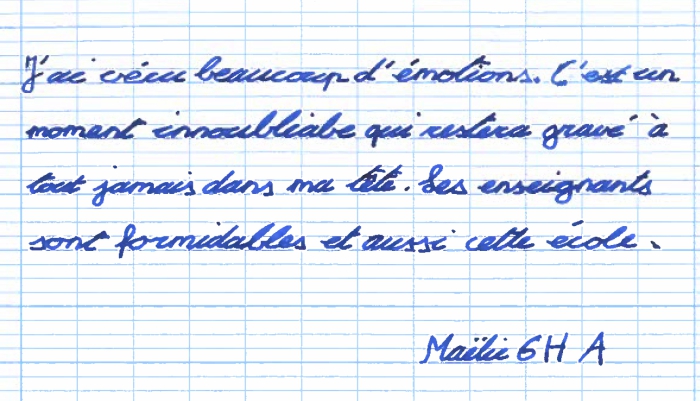 J'ai vécu beaucoup d'émotions. C'est un
moment innoubliabe qui restera gravé à
tout jamais dans ma tête. Les enseignants
sont formidables et aussi cette école.
Maëlie 6H A